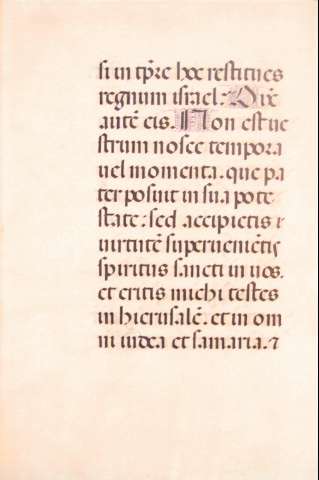 si in tp̄re hoc restitues
regnum israel: Dix̄
autē eis. Non est ue
strum nosce tempora
uel momenta. que pa
ter posuit in sua pote
state: sed accipietis
uirtutē superuenientis
spiritus sancti in uos.
et eritis michi testes
in hierusalē. et in om
ni iudea et samaria. ⁊